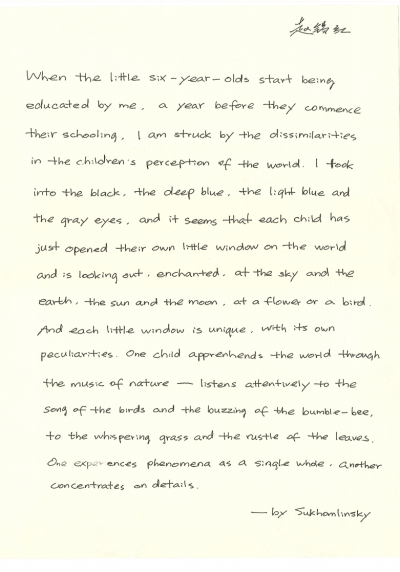 赵绪红
When the little six-year-olds start being
educated by me, a year before they commence
their schooling, I am struck by the dissimilarities
in the children's perception of the world. I look
into the black, the deep blue, the light blue and
the gray eyes, and it seems that each child has
just opened their own little window on the world
and is looking out, enchanted, at the sky and the
earth, the sun and the moon, at a flower or a bird.
And each little window is unique, with its own
peculiarities. One child apprenhends the world through
the music of nature — listens attentively to the
song of the birds and the buzzing of the bumble-bee,
to the whispering grass and the rustle of the leaves.
One experiences phenomena as a single whole. Another
concentrates on details.
— by Sukhomlinsky